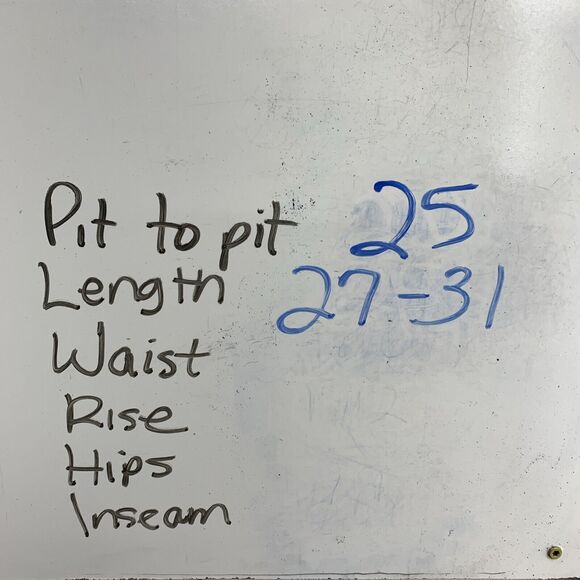 Pit to pit 25
Length 27-31
Waist
Rise
Hips
Inseam